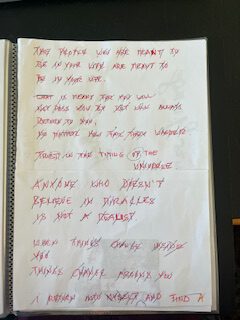 THE PEOPLE WHO ARE MEANT TO
BE IN YOUR LIFE ARE MEANT TO
BE IN YOUR LIFE.
WHAT IS MEANT FOR YOU WILL
NOT PASS YOU BY BUT WILL ALWAYS
RETURN TO YOU,
NO MATTER HOW FAR THEY WANDER
TRUST IN THE TIMING OF THE
UNIVERSE.
ANYONE WHO DOESN'T
BELIEVE IN MIRACLES
IS NOT A REALIST.
WHEN THINGS CHANGE INSIDE
YOU
THINGS CHANGE AROUND YOU
I RETURN INTO MYSELF AND FIND A